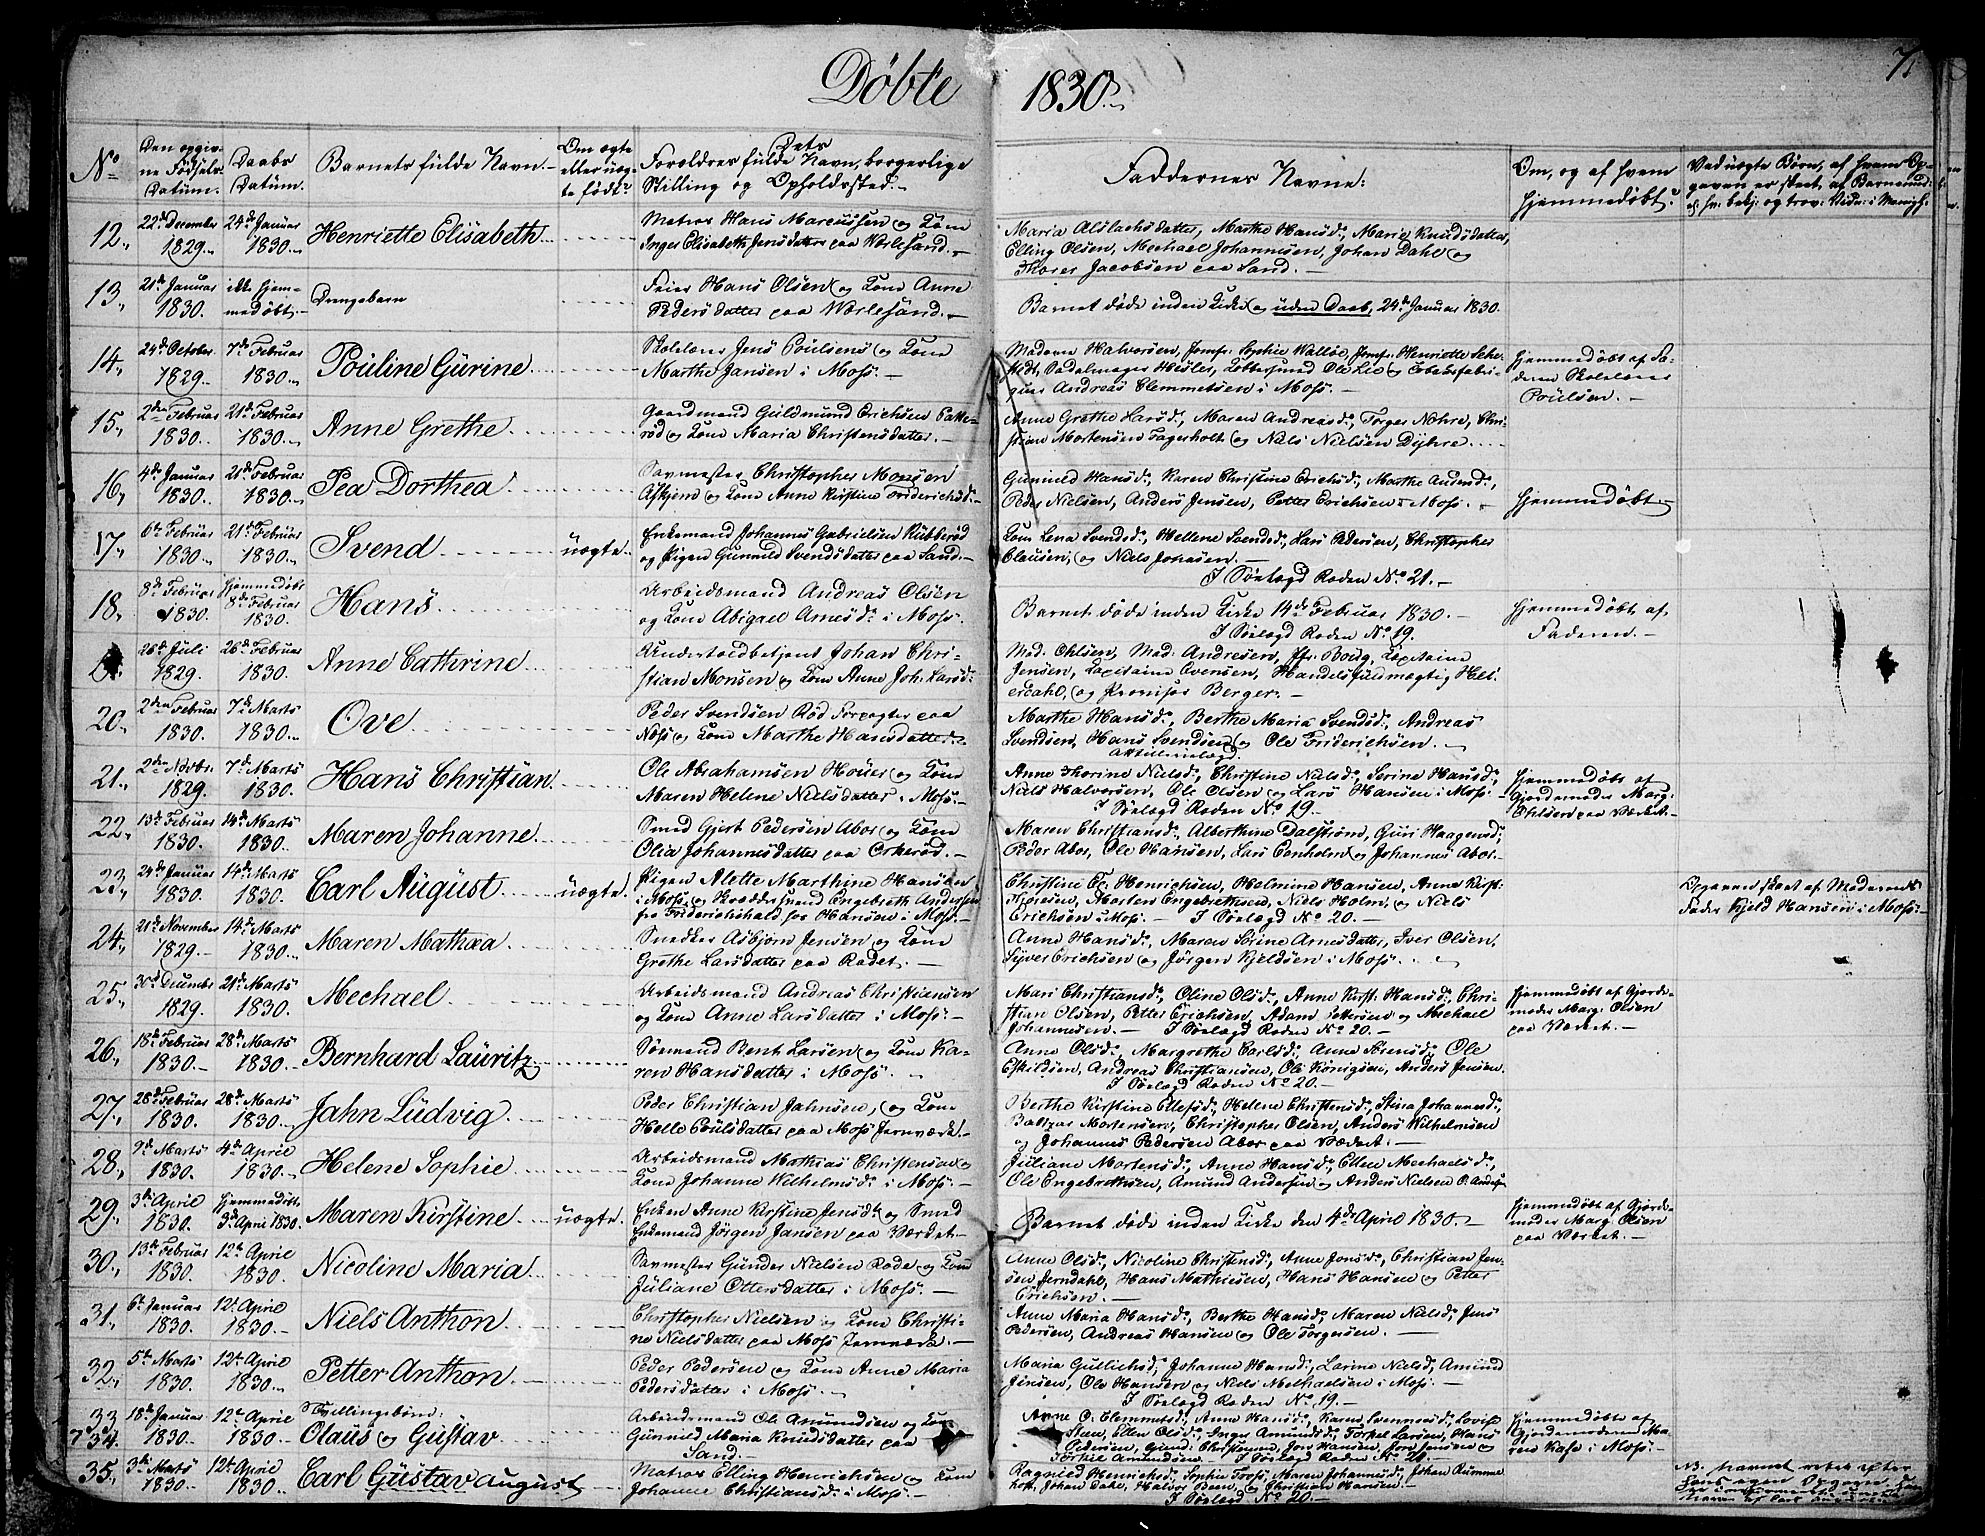 Döbte 1830.
7.
No
Den opgivne Födsels Datum.
Daabs Datum.
Barnets fulde Navn.
Om ægte eller uægte födt?
Dets Forældres fulde Navn, borgerlige Stilling og Opholdssted.
Faddernes Navne:
Om, og af hvem hjemmedöbt.
Ved uægte Börn, af hvem Opgaven er skeet, af Barnemoder
12. 22de December 1829. 24de Januar 1830. Henriette Elisabeth
Matros Hans Marcussen og Kone
Inger Elisabeth Jensdatter paa Værlesand.
Maria Aslachsdatter, Marthe Hansd:, Marie Knudsdatter,
Elling Olsen, Mechael Johannesen, Johan Dahl og
Thorer Jacobsen paa Sand.
13. 21de Januar 1830. ikke hjemmedöbt. Drengebarn
Feier Hans Olsen og Kone Anne
Pedersdatter paa Værlesand.
Barnet döde inden Kirke og uden Daab, 24de Januar 1830.
14. 24de October 1829. 7de Februar 1830. Pouline Gurine
Skolelærer Jens Poulsens og Kone
Marthe Jansen i Moss.
Madame Halvorsen, Jomfr: Sophie Walloe, Jomfr: Henriette
Andreas Clemmetsen i Moss.
hjemmedöbt af Faderen Skolelærer Poulsen.
15. 2den Februar 1830. 21de Februar 1830. Anne Grethe
Gaardmand Guldmund Erichsen Patteröd og Kone Maria Christensdatter.
Anne Grethe Harsd:, Maren Andreasd:, Torger Nohre, Christian Mortensen Fagerholt og Nils Nielsen Dyhre.
16. 4de Januar 1830. 21de Februar 1830. Pea Dorthea
Savmester Christopher Monsen
og Kone Anne Kirstine Friderichsd:
Gunnild Hansd:, Karen Christine Erichsd:, Marthe Andersd:,
Peder Nielsen, Anders Jensen, Petter Erichsen i Moss.
hjemmedöbt
17. 6te Februar 1830. 21de Februar 1830. Svend uægte.
Enkemand Johannes Gabrielsen Kubberöd
og Pigen Gunnild Svendsdatter paa Sand.
Kone Lena Svendsd:, Hellene Svendsd:, Lars Pedersen, Christopher
Clausen, og Niels Jonasen.
I Sölægd Roden No 21.
18. 8de Februar 1830. hjemmedöbt 8de Februar 1830. Hans
Arbeidsmand Andreas Olsen
og Kone Abigael Arnesd: i Moss.
Barnet döde inden Kirke 14de Februar 1830.
I Sölægd Roden No 19.
hjemmedöbt af Faderen.
26de Juli 1829. 26de Februar 1830. Anne Cathrine
Undertoldbetjent Johan Christian Monsen og Kone Anne Joh: Larsd:
Mad: Ohlsen, Mad: Andresen, Capitaine
Jensen, Capitaine Evensen, Handelsfuldmægtig
og Provisor Berger.
20. 2den Februar 1830. 7de Marts 1830. Ove
Peder Svendsen Röd Forpagter paa
Moss og Kone Marthe Hansdatter.
Marthe Hansd:, Berthe Maria Svendsd:, Andreas
Svendsen, Hans Svendsen og Ole Friderichsen.
21. 2den Novbr. 1829. 7de Marts 1830. Hans Christian
Ole Abrahamsen Houer og Kone
Maren Helene Nielsdatter i Moss.
Anne Thorine Nielsd:, Christine Nielsd:, Serine Hansd:,
Niels Halvorsen, Ole Olsen og Lars Hansen i Moss.
I Sölægd Roden No 19.
hjemmedöbt af Gjordemoder Marg: Ohlsen paa Værket.
22. 13de Februar 1830. 14de Marts 1830. Maren Johanne
Smed Gjert Pedersen Abor og Kone
Olia Johannesdatter paa Orkeröd.
Maren Christiansd:, Alberthine Dalström, Guri Haagensd:,
Peder Abor, Ole Hansen, Lars Eenholm og Johannes Abor.
23. 24de Januar 1830. 14de Marts 1830. Carl August uægte.
Pigen Alette Marthine Hansen
i Moss, og Skræddersvend Engebreth Andersen
fra Friderichshald, for Hansen i Moss.
Christine Fr: Henrichsen, Helmine Hansen, Anne Kirst:
Morten Engebrethsen, Niels Holm, og Niels
Erichsen i Moss. I Sölægd No 20.
Opgaven skeet af Moderens
Fader Kjeld Hansen i Moss.
24. 21de November 1829. 14de Marts 1830. Maren Mathea
Snedker Asbjörn Jensen og Kone
Grethe Larsdatter paa Rödet.
Anne Hansd:, Maren Sörine Arnesdatter, Iver Olsen,
Syver Erichsen og Jörgen Kjeldsen i Moss.
25. 30te December 1829. 21de Marts 1830. Mechael
Arbeidsmand Andreas Christiensen
og Kone Anne Larsdatter i Moss.
Mari Christiansd:, Oline Olsd:, Anne Kirst: Hansd:, Christian Olsen, Petter Erichsen, Adam Pettersen og Michael
Johannesen. I Sölægd Roden No 20.
hjemmedöbt af Gjordemoder Marg: Olsen paa Værket.
26. 18de Februar 1830. 28de Marts 1830. Bernhard Lauritz
Sömand Bent Larsen og Kone Karen Hansdatter i Moss.
Anne Olsd:, Margrethe Carlsd:, Anne Iversd:, Ole
Eskildsen, Andreas Christiansen, Ole Königsen, Anders Jensen.
I Sölægd Roden No 20.
27. 28de Februar 1830. 28de Marts 1830. Jahn Ludvig
Peder Christian Jahnsen, og Kone
Helle Poulsdatter paa Moss Jernværk.
Berthe Kirstine Ellefsd:, Helene Christensd:, Stina Johannesd:,
Baltzar Mortensen, Christopher Olsen, Anders Wilhelmsen
og Johannes Pedersen Abor paa Værket.
28. 9de Marts 1830. 4de April 1830. Helene Sophie
Arbeidsmand Mathias Christensen og
Kone Johanne Wilhelmsd: i Moss.
Juliane Mortensd:, Anne Hansd:, Ellen Mechaelsd:,
Ole Engebrethsen, Amund Andersen og Anders Nielsen
29. 3de April 1830. hjemmedöbt 3de April 1830. Maren Kirstine uægte.
Enken Anne Kirstine Jensd: og Smed
Enkemand Jörgen Jansen paa Værket.
Barnet döde inden Kirke den 4de April 1830.
hjemmedöbt af Gjordemoder Marg: Olsen paa Værket.
30. 13de Februar 1830. 12te April 1830. Nicoline Maria
Savmester Gunder Nielsen Rode og Kone
Juliane Ottersdatter i Moss.
Anne Olsd:, Nicoline Christensd:, Anne Jonsd:, Christian Jensen Jerndahl, Hans Mathiesen, Hans Hansen og Petter
Erichsen.
31. 6te Januar 1830. 12te April 1830. Niels Anthon
Christopher Nielsen og Kone Christine Nielsdatter paa Moss Jernværk.
Anne Maria Hansd:, Berthe Hansd:, Maren Nielsd:, Jens
Pedersen, Andreas Hansen og Ole Torgersen.
32. 5te Marts 1830. 12te April 1830. Petter Anthon
Peder Pedersen og Kone Anne Maria
Pedersdatter i Moss.
Maria Gullichsd:, Johanne Hansd:, Larine Nielsd:, Amund
Jensen, Ole Hansen og Niels Michaelsen i Moss.
I Sölægd Roden No 19.
33 34. 18de Januar 1830. 12te April 1830. Tvillingebörn: Olaus og Gustav
Arbeidsmand Ole Amundsen og Kone
Gunnild Maria Knudsdatter paa
Sand.
Anne O: Clemmetsd:, Anne Hansd:, Karen Svennesd:, Lovise
Steen, Ellen Olsd:, Inger Amundsd:, Torkel Larsen, Hans
Pedersen, Gund: Christensen, Jon Hansen, Jens Jensen og
Torkil Amundsen. I Sölægd Roden No 21.
hjemmedöbte af Gjordemoderen Maren Kass i Moss.
35. 3de Marts 1830. 12te April 1830. Carl Gustav August
Matros Elling Henrichsen og Kone
Johanne Christiansd: i Moss.
Ragnild Henrichsd:, Sophie Torss, Maren Johannesd:, Johan Rummelhoff, Johan Dahl, Halvor Been, og Christian Hansen.
I Sölægd No 20.
NB. Navnet rettet efter